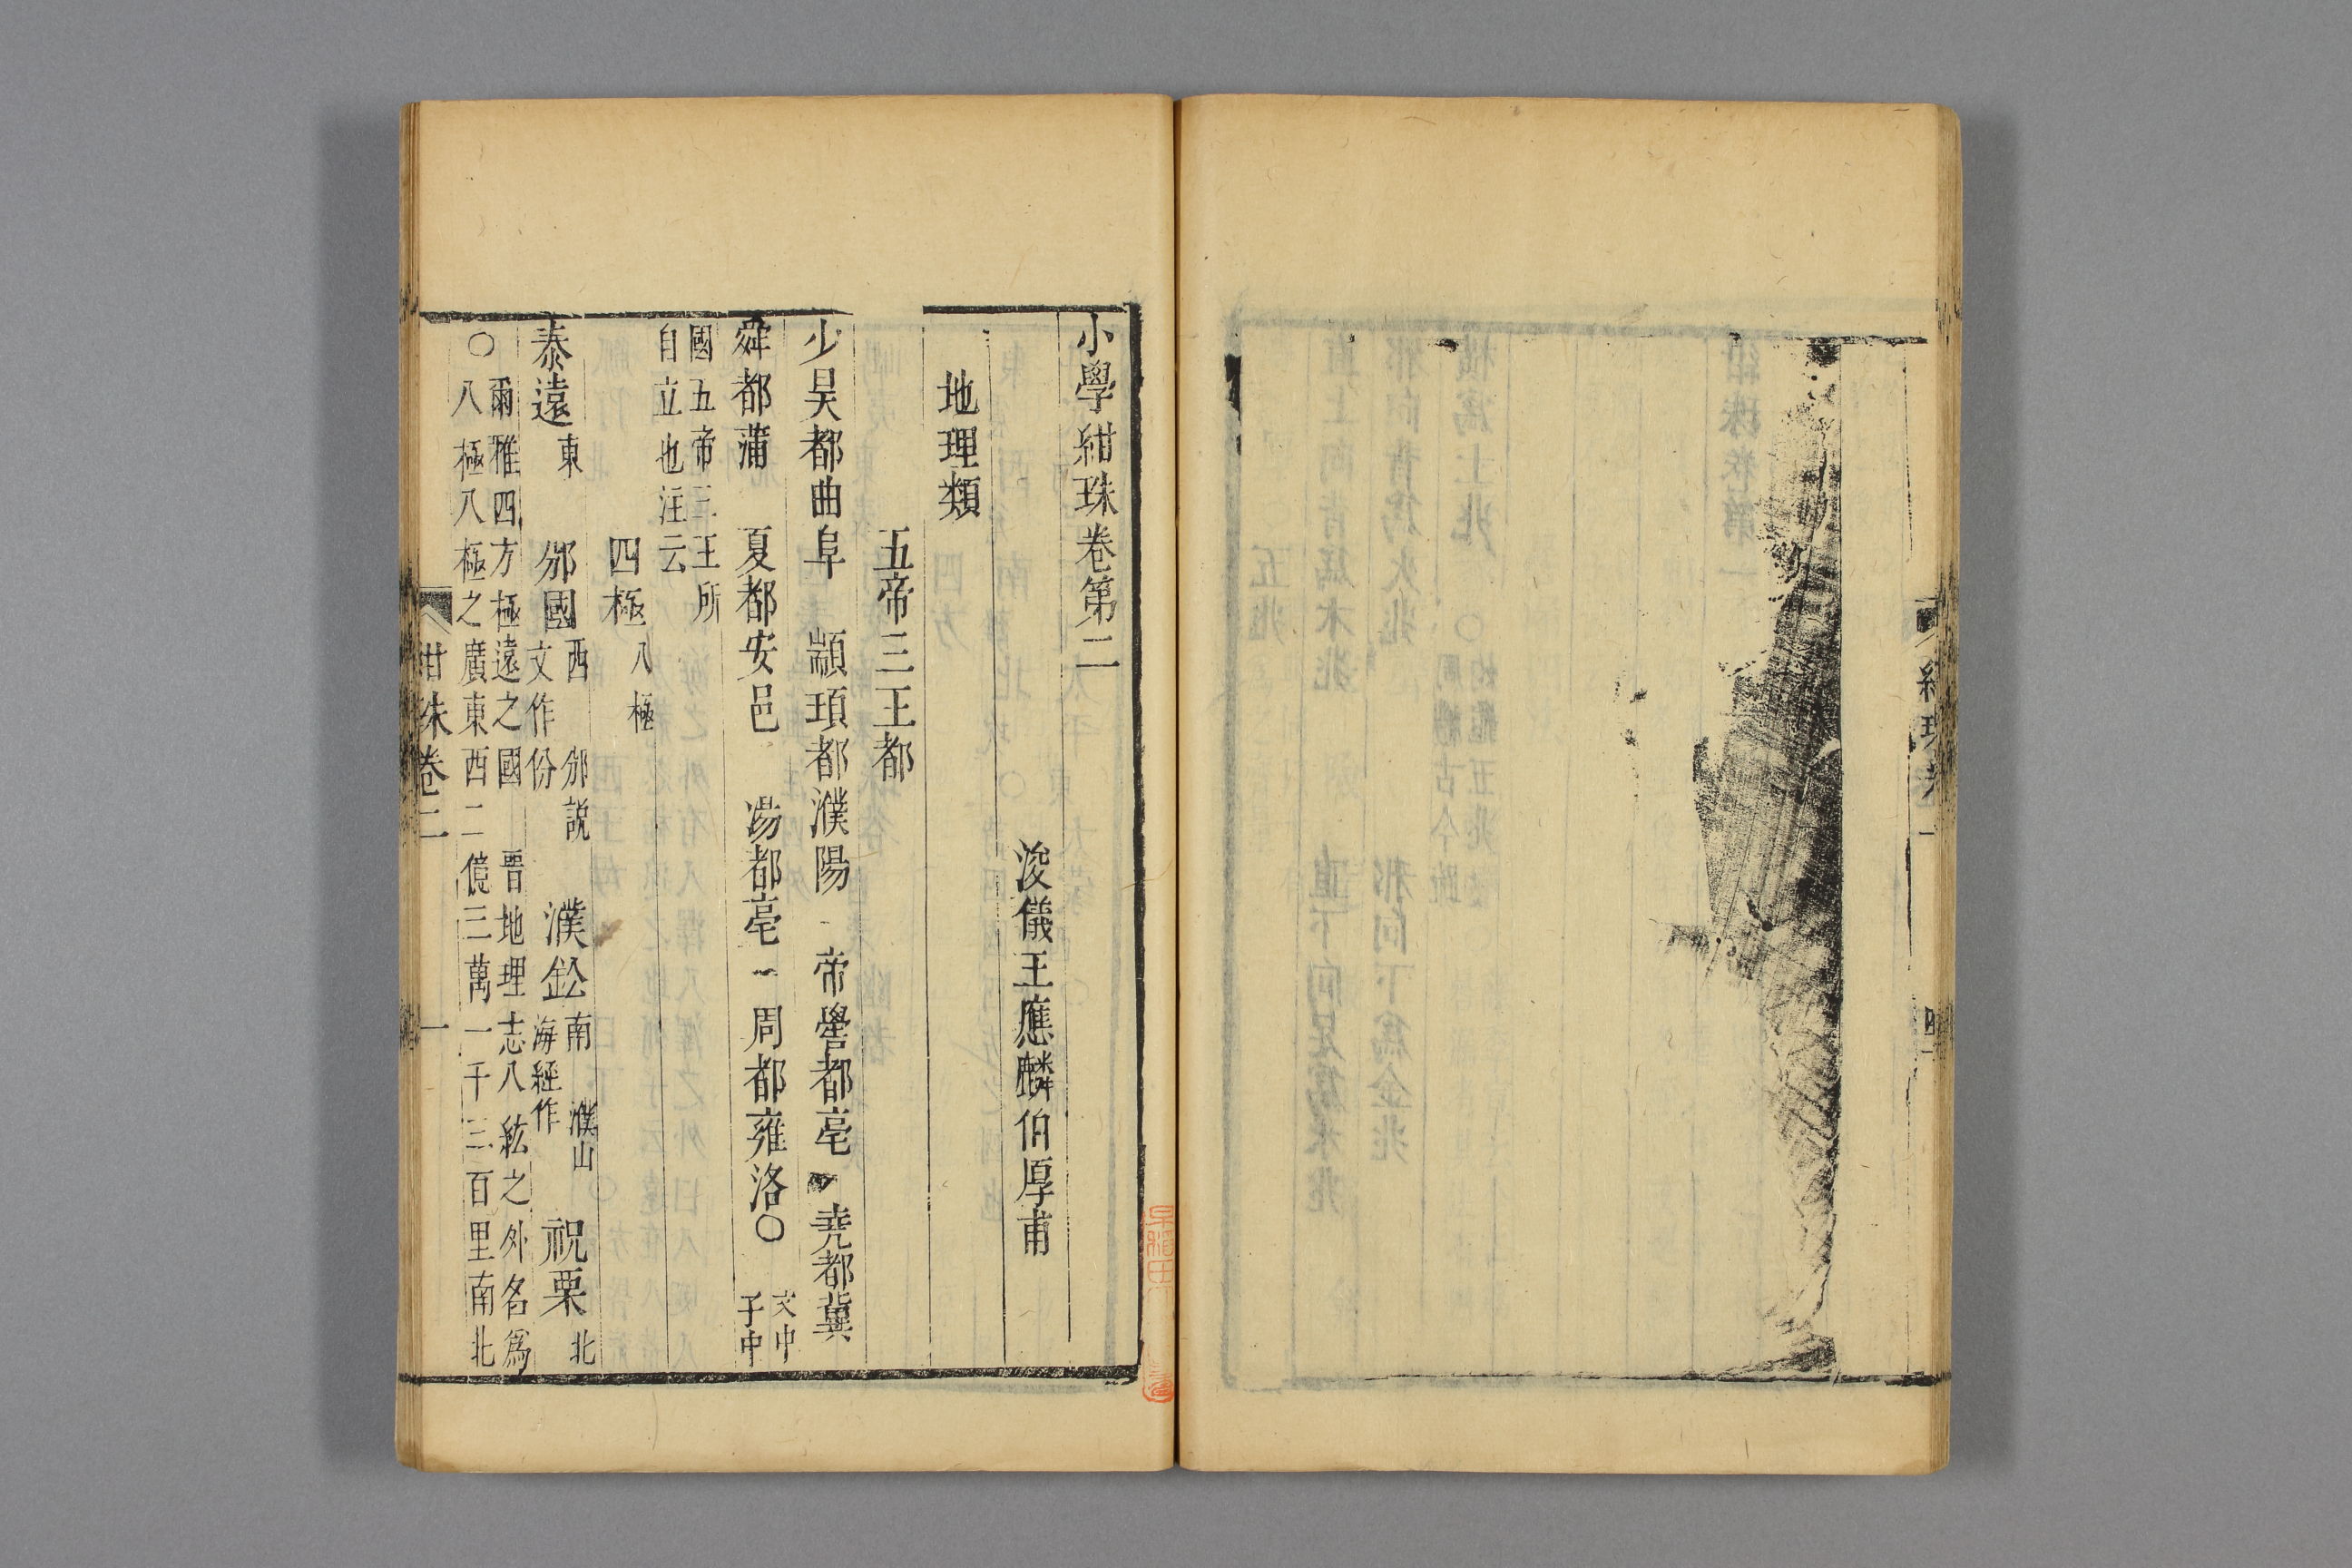 小學紺珠卷第二
浚儀王應麟伯厚甫
地理類
五帝三王都
少昊都曲阜 顓頊都濮陽 帝嚳都亳 堯都冀
舜都蒲 夏都安邑 湯都亳 周都雍洛〇 文中子中
國五帝三王所
自立也注云
四極 八極
泰遠 東 邠國 西 邠説文作份 濮鈆 南 濮山海經作 祝栗 北
〇爾雅四方極遠之國 晋地理志八紘之外名爲
八極八極之廣東西二億三萬一千三百里南北
紺珠卷二 一